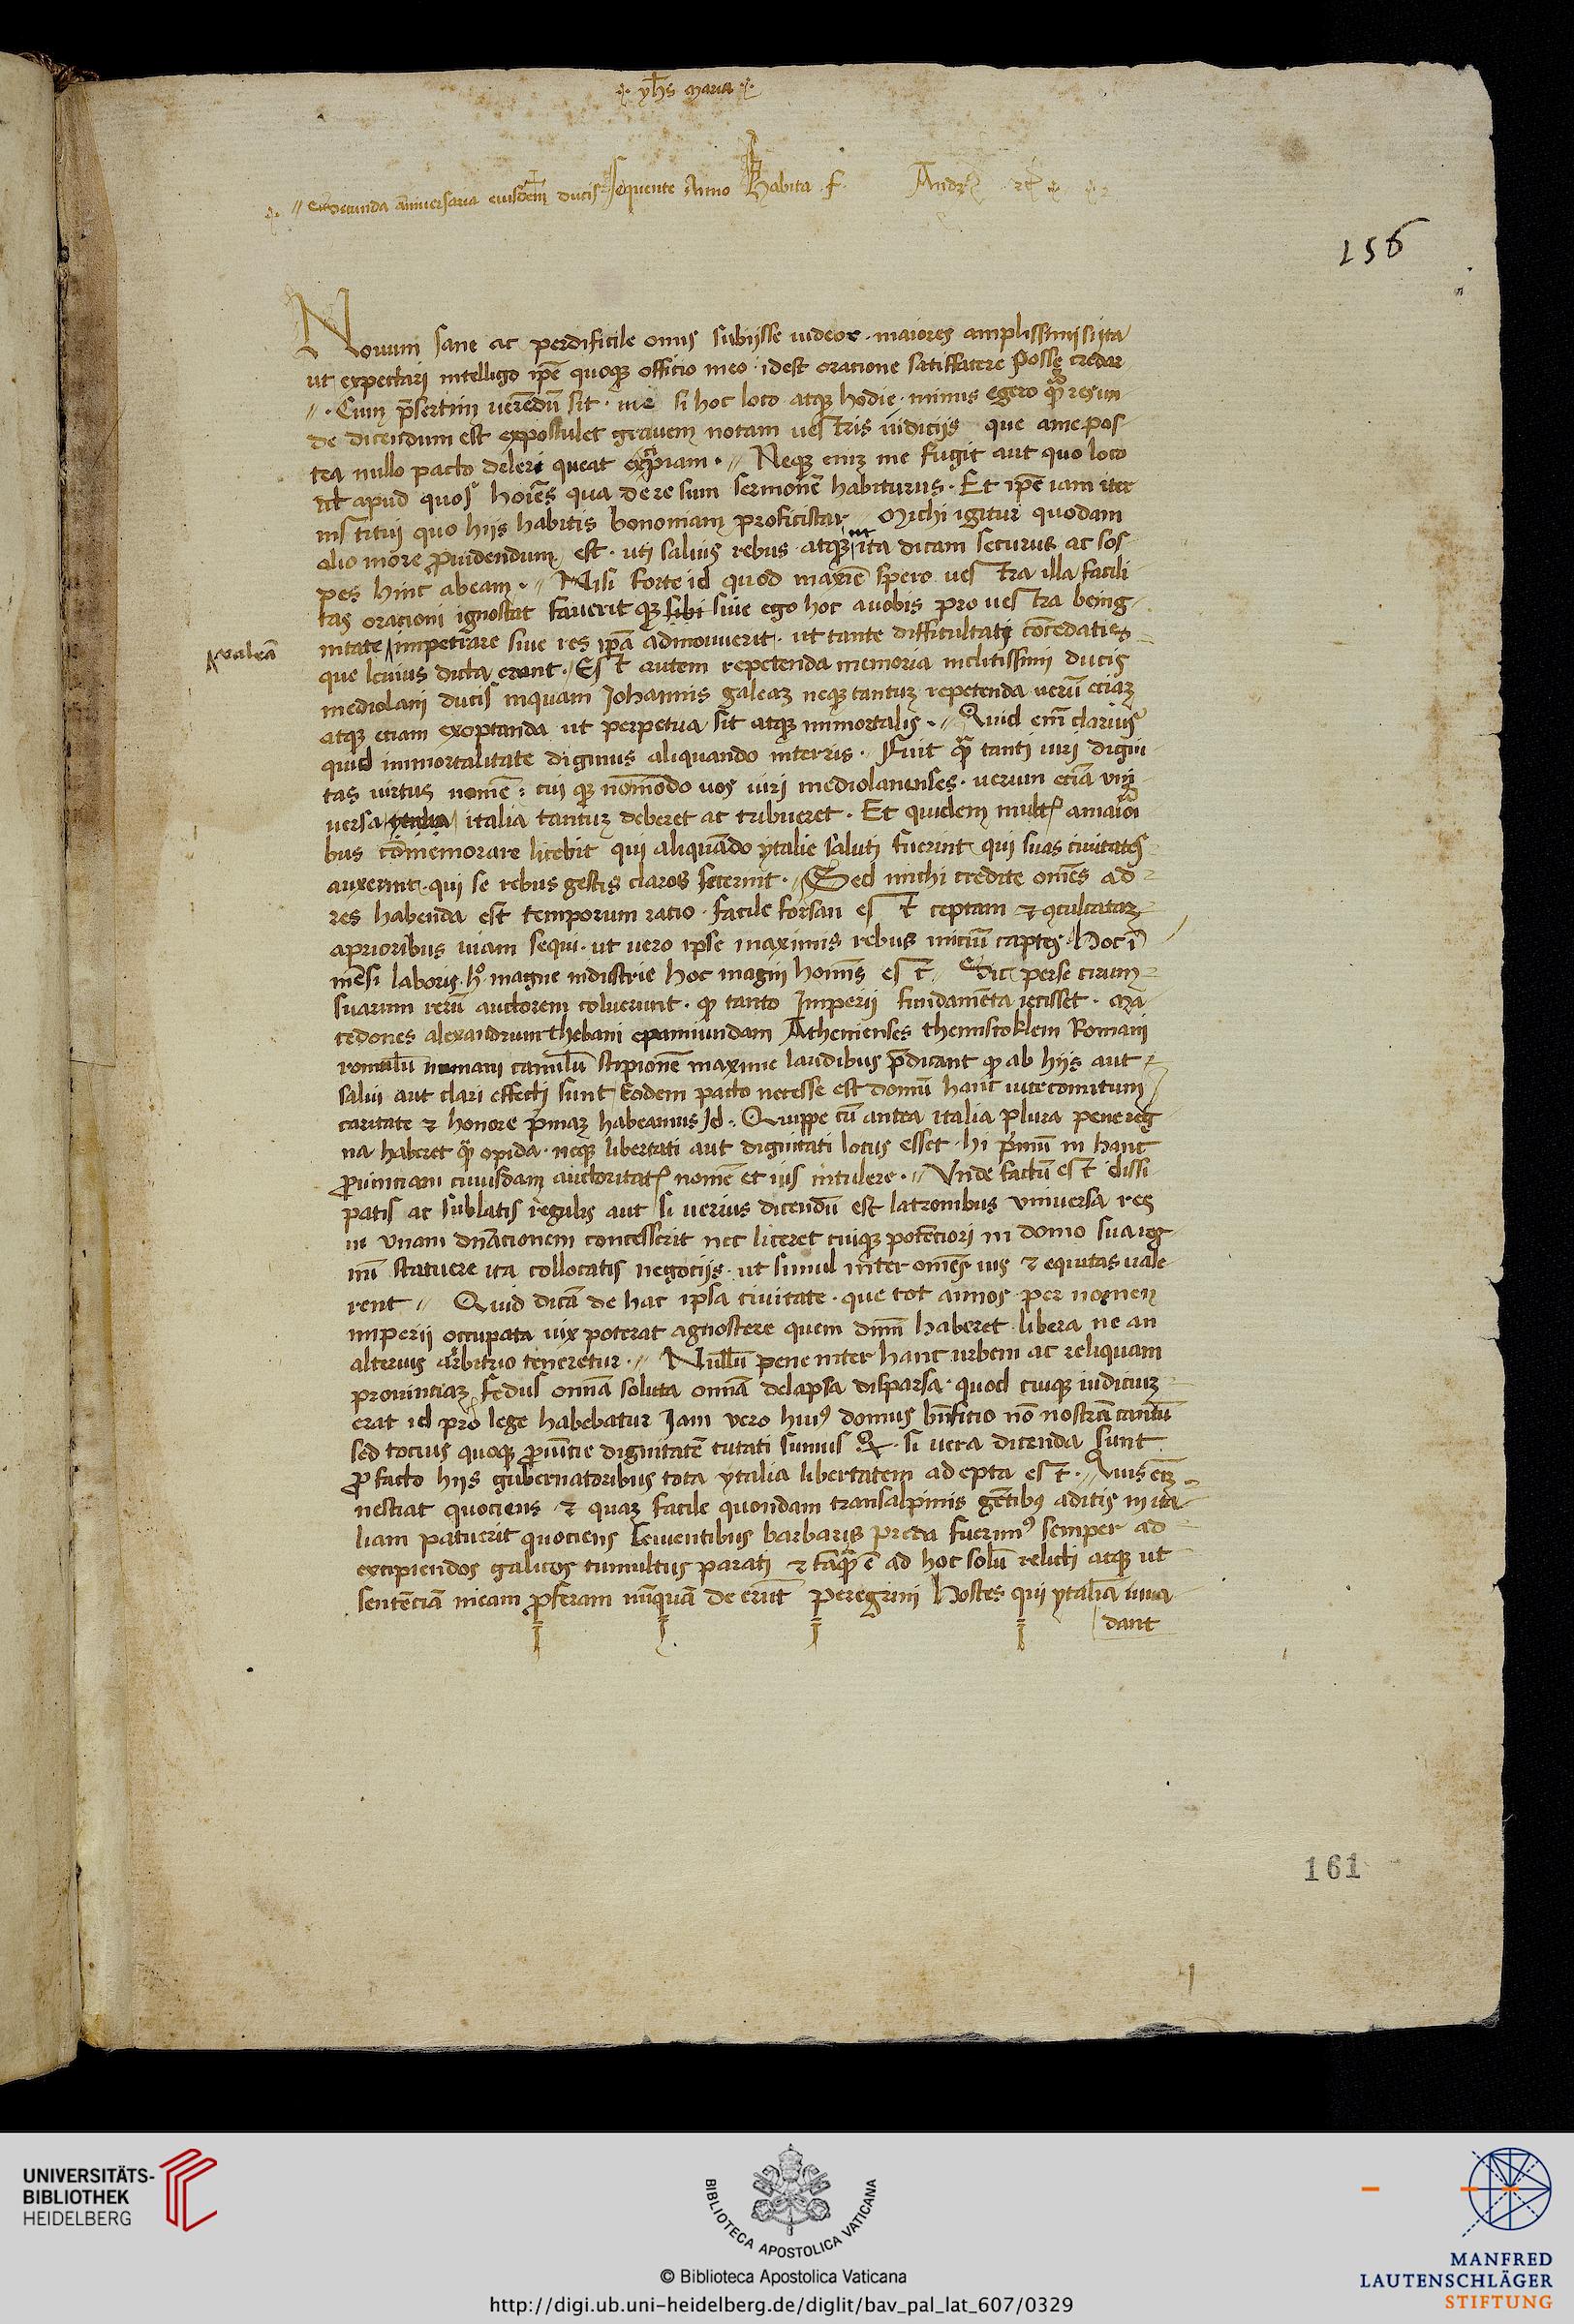 yhs maria
Secunda anniversaria eiusdem ducis sequente Anno Habita f. Andr
156
Novum sane ac perdificile onus subijsse videor maiores amplissimi si ita
ut expectari intelligo ipē quoqz officio meo idest oratione satiffacere posse credar
Cum p̄sertim verēdū sit me si hoc loco atqz hodie minus egero qͣ res un
de dicendum est expostulet gravem notam vestris iudicijs que ame pos
tea nullo pacto deleri queat expriam Neqz eniz me fugit aut quo loco
aut apud quos hoīes qua de re sum sermonē habiturus Et ipē iam iter
institui quo hiis habitis bononiam proficiscar Michi igitur quodam
alio more ꝓvidendum est uti salvis rebus atqz ut ita dicam securus ac sos
pes hinc abeam Nisi forte id quod maxīe spero vestra illa facili
tas oracioni ignoscat faverit qz sibi sive ego hoc avobis pro vestra being
nitate impetrare sive res ipā admonuerit ut tante difficultati cōcedatis
valeā
que levius dicta erant Est autem repetenda memoria inclitissimi ducis
mediolani ducis inquam Johannis galeaz neqz tantuz repetenda verū eciaz
atqz eciam exoptanda ut perpetua sit atqz immortalis Quid em̄ clarius
quid immortalitate dignius aliquando interris Fuit qͣ tanti viri digni
tas virtus nomē cui qz nomodo vos viri mediolanenses verum eciā uni
versa ytalia italia tantuz deberet ac tribueret Et quidem mult amaiori
bus cōmemorare licebit qui aliquādo ytalie saluti fuerint qui suas civitates
auxerint qui se rebus gestis claros fecerint Sed michi credite omēs ad
res habenda est temporum ratio facile forsan est ceptam et ꝯculcataz
aprioribus viam sequi ut vero ipse maximis rebus iniciū captes Hoc ī
mēsi laboris h° magne industrie hoc magni homīs est Sic perse cirum
suarum rerū auctorem coluerunt qz tanto Imperii fundamēta iecisset Ma
cedones alexandrum thebani epaminundam Athenienses themistoklem Romani
romulū numani camilū scipionē maxime laudibus p̄dicant qz ab hijs aut
salvi aut clari effecti sunt Eodem pacto necesse est domū hanc vicecomitum
caritate et honore p̄maz habeamus Id Quippe cū antea italia plura pene reg
na haberet qͣ opida neqz libertati aut dignitati locus esset hi p̄mū in hanc
ꝓvinciam cuiusdam auctoritat nomē et ius intulere Unde factū est dissi
patis ac sublatis regulis aut si verius dicendū est latronibus universa res
in unam dn̄acionem concesserit nec liceret cuiqz potēciori in domo sua reg
nū statuere ita collocatis negocijs ut simul inter omēs ius et equitas vale
rent Quid dicā de hac ipsa civitate que tot annos per nomen
imperii occupata vix poterat agnoscere quem dnm̄ haberet libera ne an
alterius arbitrio teneretur Nullū pene inter hanc urbem ac reliquam
provinciaz fedus omīa soluta omīa delapsa disparsa quod cuiqz iudiciuz
erat id pro lege habebatur Jam vero huiꝰ domus bn̄ficio nō nostrā tantū
sed tocius quoqz ꝓvīcie dignitatē tutati sumus Et si vera dicenda sunt
ꝓ facto hijs gubernatoribus tota ytalia libertatem adepta est Quis em̄
nesciat quociens et quaz facile quondam transalpinis gētibꝰ aditis in ita
liam patuerit quociens sevientibus barbaris preda fuerimꝰ semper ad
excipiendos galicos tumultus parati et tāqͣ ē ad hoc solū relicti atqz ut
sentēciā meam ꝓferam nūquā de erūt peregrini hostes qui ytaliā inva
dant
161
UNIVERSITÄTS-
BIBLIOTHEK
HEIDELBERG
BIBLIOTECA APOSTOLICA VATICANA
© Biblioteca Apostolica Vaticana
http://digi.ub.uni-heidelberg.de/diglit/bav_pal_lat_607/0329
MANFRED
LAUTENSCHLÄGER
STIFTUNG